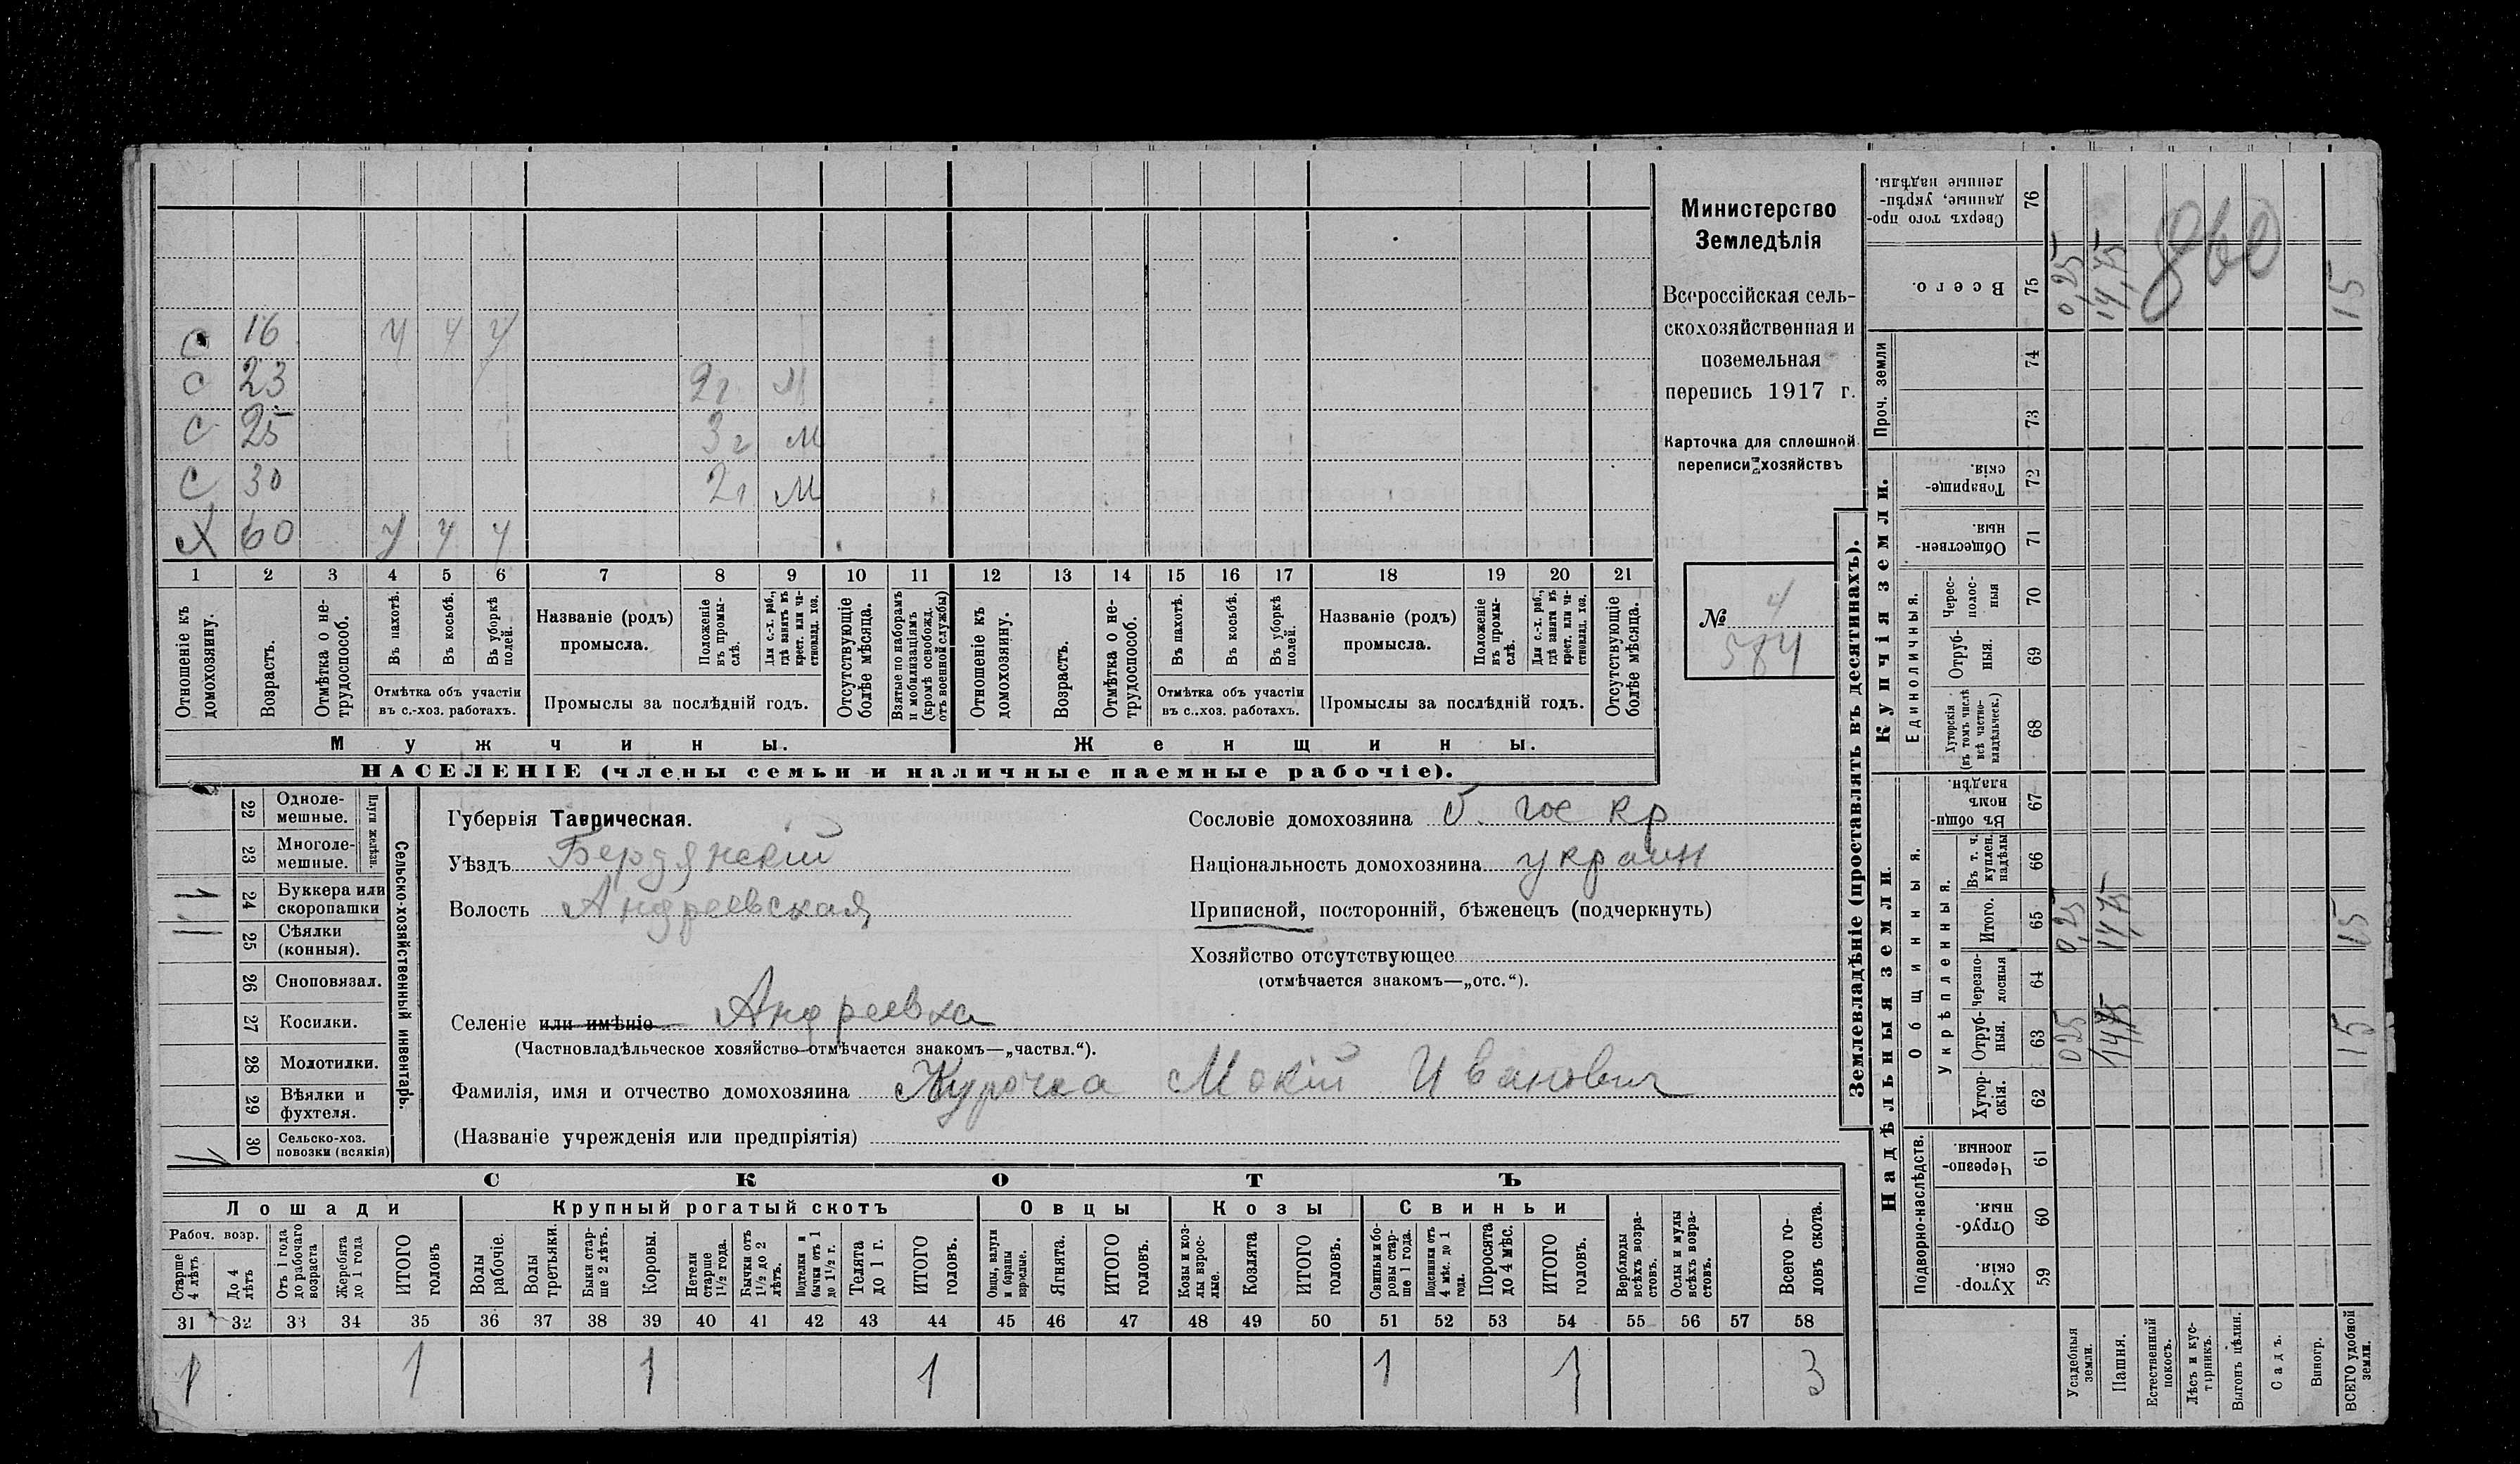 С 16 ч ч ч
С 23 2г М
С 25 3г М
С 30 2г М
Х 60 ч ч ч
1 2 3 4 5 6 7 8 9 10 11 12 13 14 15 16 17 18 19 20 21
Отношеніе къ домохозяину.
Возрастъ.
Отмѣтка о не-трудоспособ.
Въ пахотѣ.
Въ косьбѣ.
Въ уборкѣ полей.
Отмѣтка объ участіи
въ с.-хоз. работахъ.
Названіе (родъ)
промысла.
Положеніе въ промы-слѣ.
Для с.-х. раб., гдѣ занятъ въ крест. или ча-стновлад. хоз.
Промыслы за послѣдній годъ.
Отсутствующіе болѣе мѣсяца.
Взятые по наборамъ и мобилизаціямъ (кромѣ освобожд. отъ военной службы)
Отношеніе къ домохозяину.
Возрастъ.
Отмѣтка о не-трудоспособ.
Въ пахотѣ.
Въ косьбѣ.
Въ уборкѣ полей.
Отмѣтка объ участіи
въ с..хоз. работахъ.
Названіе (родъ)
промысла.
Положеніе въ промы-слѣ.
Для с.-х. раб., гдѣ занята въ крест. или ча-стновлад. хоз.
Промыслы за послѣдній годъ.
Отсутствующіе болѣе мѣсяца.
Мужчины. Женщины.
НАСЕЛЕНІЕ (члены семьи и наличные наемные рабочіе).
Министерство
Земледѣлія
Всероссійская сель-
скохозяйственная и
поземельная
перепись 1917 г.
Карточка для сплошной
переписи хозяйствъ
№ 4
584
22 Одноле-мешные.
23 Многоле-мешные.
Плуги желѣзн.
24 Буккера или скоропашки
25 Сѣялки (конныя).
26 Сноповязал.
27 Косилки.
28 Молотилки.
29 Вѣялки и фухтеля.
30 Сельско-хоз. повозки (всякія)
Сельско-хозяйственный инвентарь.
Губернія Таврическая.
Уѣздъ Бердянскій
Волость Андреевская
Селеніе или имѣніе Андреевка
(Частновладѣльческое хозяйство отмѣчается знакомъ—„частвл.“).
Фамилія, имя и отчество домохозяина Курочка Мокій Иванович
(Названіе учрежденія или предпріятія)
Сословіе домохозяина б. гос кр
Національность домохозяина украин
Приписной, посторонній, бѣженецъ (подчеркнуть)
Хозяйство отсутствующее
(отмѣчается знакомъ—„отс.“).
СКОТЪ
Лошади Крупный рогатый скотъ Овцы Козы Свиньи
Рабоч. возр.
Старше 4 лѣтъ
До 4 лѣтъ
Отъ 1 года до рабочаго возраста
Жеребята до 1 года
ИТОГО головъ
Волы рабочіе.
Волы третьяки.
Быки стар-ше 2 лѣтъ.
Коровы.
Нетели старше 1½ года.
Бычки отъ 1½ до 2 лѣтъ.
Подтелки и бычки отъ 1 до 1½ г.
Телята до 1 г.
ИТОГО головъ.
Овцы, валухи и бараны взрослые.
Ягнята.
ИТОГО головъ.
Козы и коз-лы взрос-лые.
Козлята
ИТОГО головъ.
Свиньи и бо-ровы стар-ше 1 года.
Подсвинки отъ 4 мѣс. до 1 года.
Поросята до 4 мѣс.
ИТОГО головъ.
Верблюды всѣхъ возра-стовъ.
Ослы и мулы всѣхъ возра-стовъ.
Всего го-ловъ скота.
31 32 33 34 35 36 37 38 39 40 41 42 43 44 45 46 47 48 49 50 51 52 53 54 55 56 57 58
1 1 1 1 1 1 3
Землевладѣніе (проставлять въ десятинахъ).
Надѣльныя земли.
Купчія земли.
Проч. земли
Подворно-наслѣдств.
Общинныя.
Укрѣпленныя.
Единоличныя.
Хутор-скія. 59
Отруб-ныя. 60
Черезпо-лосныя 61
Хутор-скія. 62
Отруб-ныя. 63
Черезпо-лосныя 64
Итого. 65
Въ т. ч. куплен. надѣлы 66
Въ общин-номъ владѣн. 67
Хуторскія (въ томъ числѣ всѣ частно-владѣльческ.) 68
Отруб-ныя. 69
Черес-полос-ныя 70
Обществен-ныя. 71
Товарище-скія. 72
73
74
Всего. 75
Сверхъ того про-данные, укрѣп-ленные надѣлы. 76
Усадебныя земли. 0,25 0,25 0,25
Пашня. 14,75 14,75 14,75
Естественный покосъ.
Лѣсъ и кус-тарникъ.
Выгонъ цѣлин.
Садъ.
Виногр.
ВСЕГО удобной земли. 15 15 15